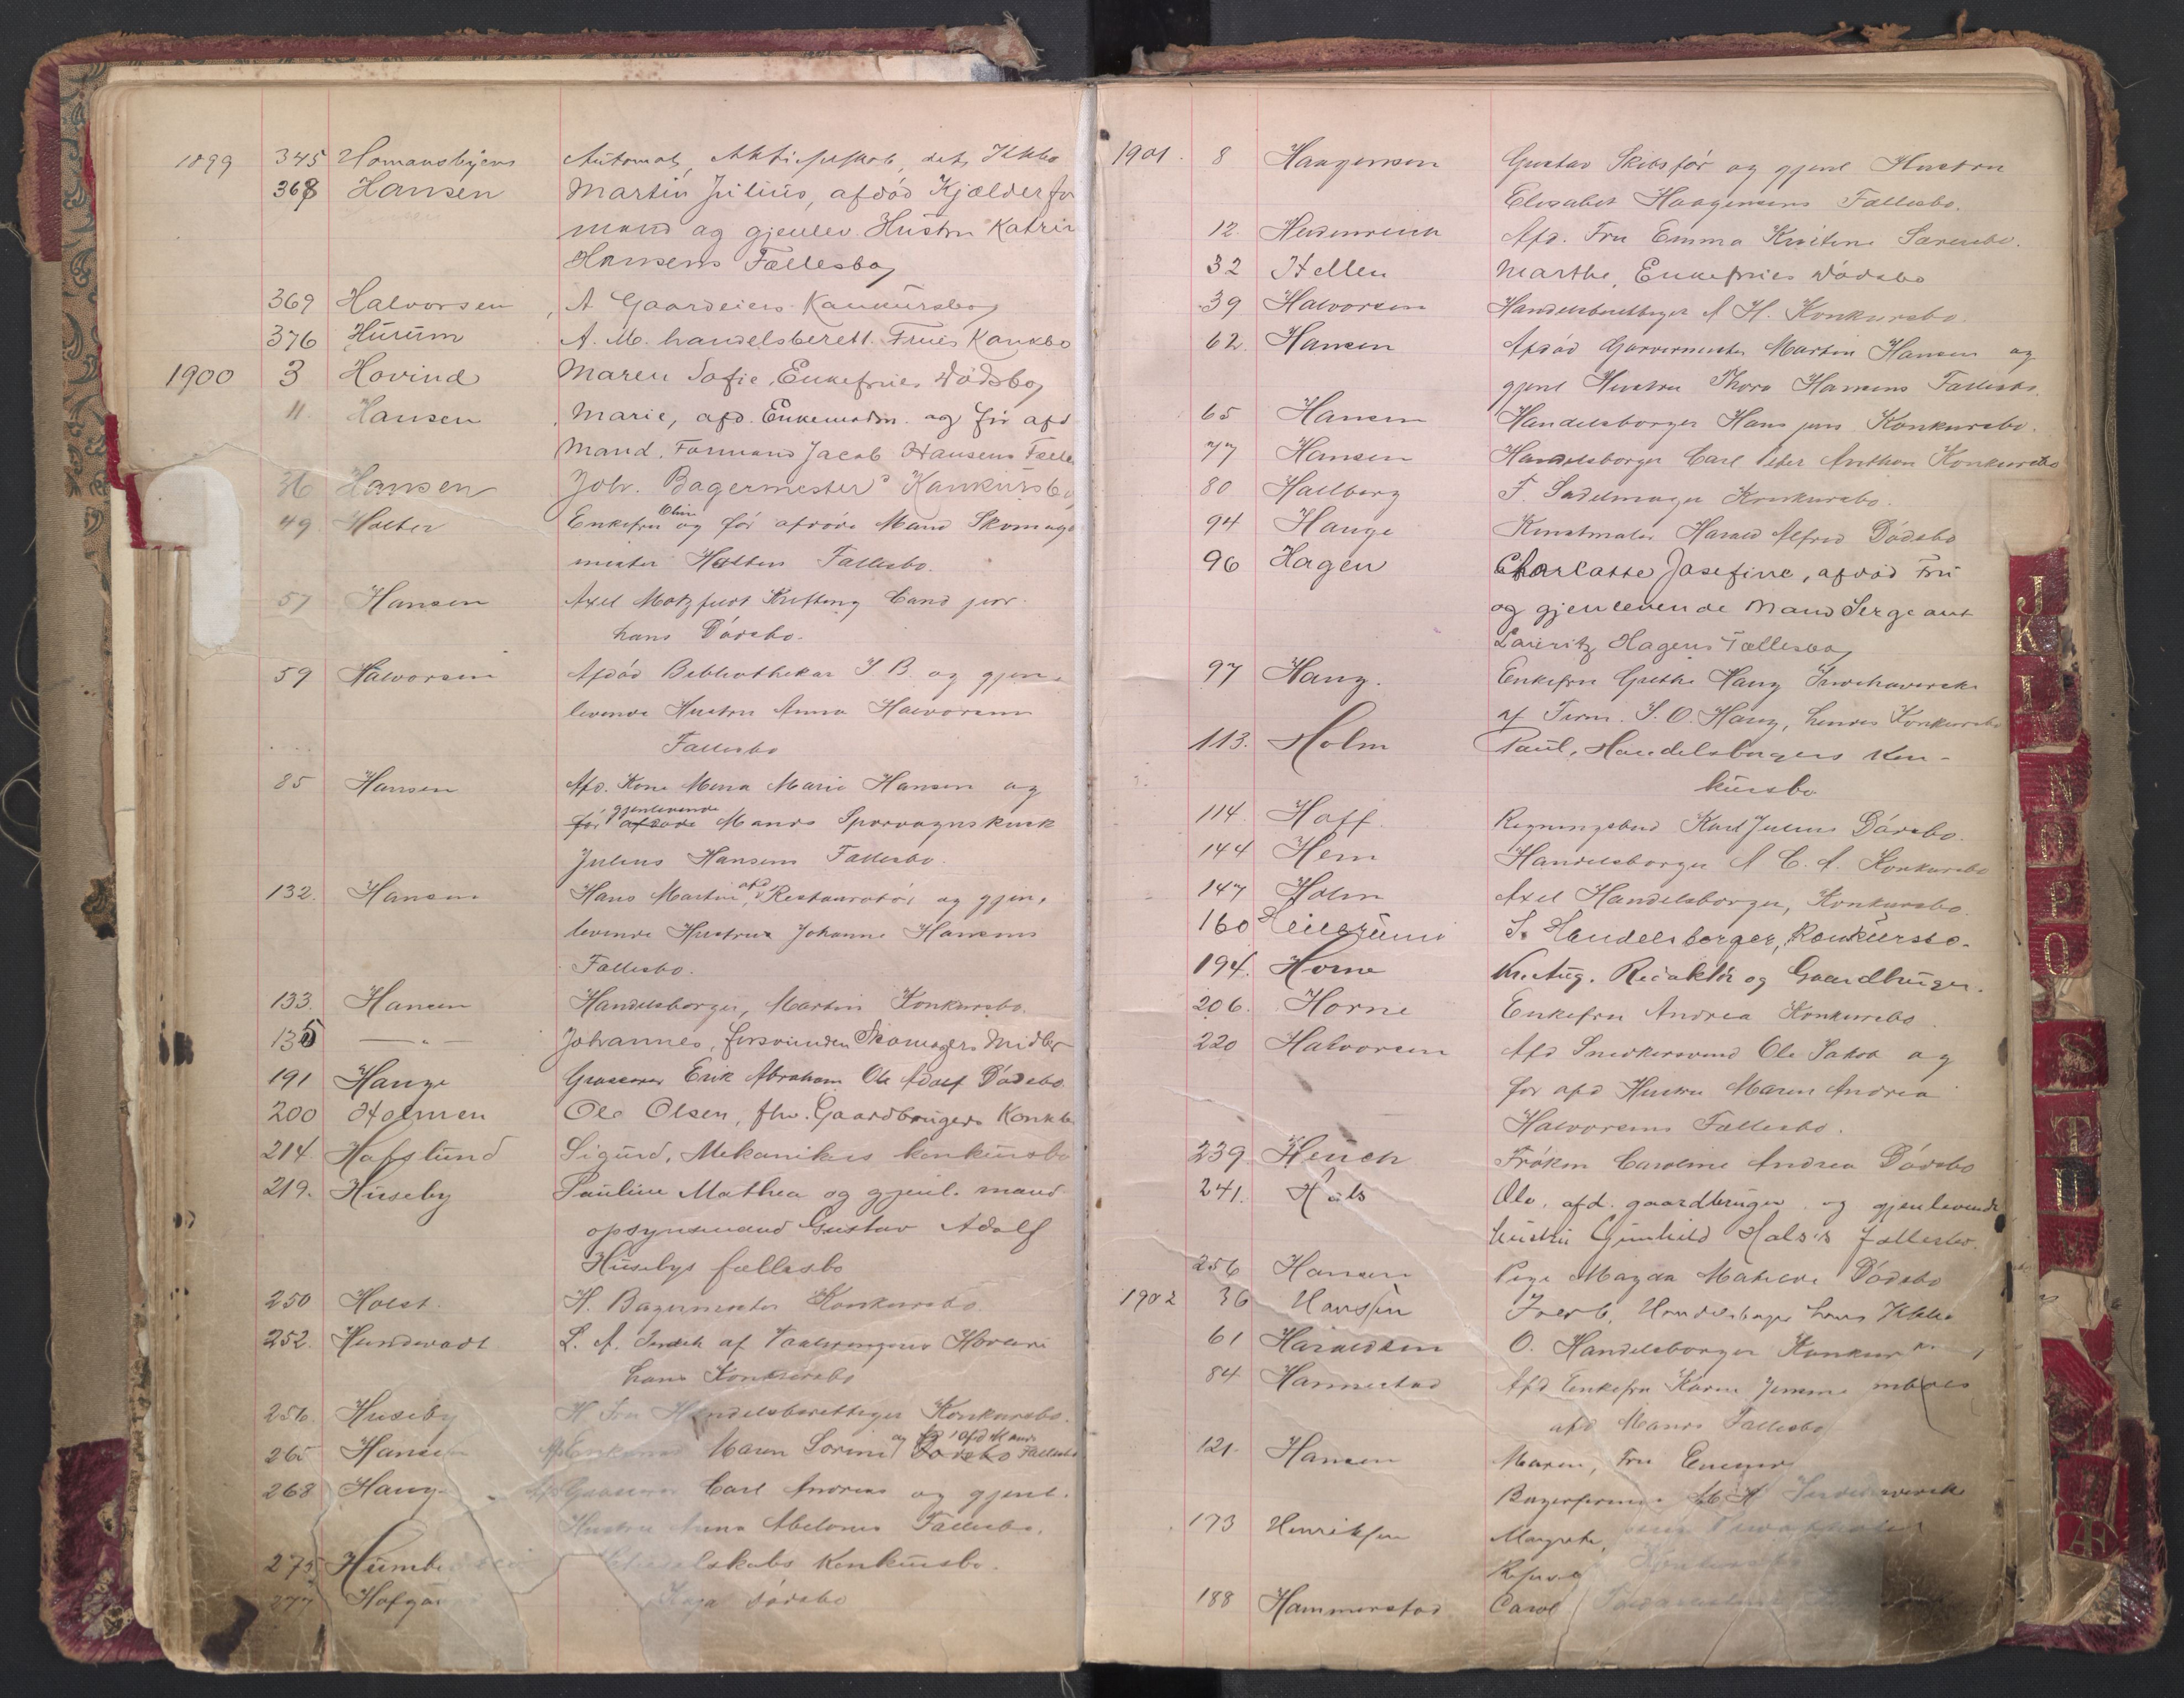 1899 345 Homansbyens Automat, Aktieselskab, dets Kkbo
368 Hansen Martin Julius, afdød Kjælderfor
mand og gjenlev. Hustru Katrin
Hansens Fællesbo
369 Halvorsen, A Gaardeiers Konkursbo
376 Hurum A. M. handelsberett. Frues Konkbo
1900 3 Hovind Maren Sofie, Enkefrues Dødsbo
11. Hansen Marie, afd. Enkemadm. og før afd
Mand. Formand Jacob Hansens Fælle
36 Hansen Joh. Bagermesters Konkursbo
49. Holter Enkefru Oline og før afdøde Mand Skomager
mester Holters Fællesbo.
57 Hansen Axel Motzfeldt Kristing Cand jur.
hans Dødsbo.
59 Halvorsen Afdød Bibliothekar J. B. og gjen-
levende Hustru Anna Halvorsens
Fællesbo
85 Hansen Afd. Kone Mena Marie Hansen og
før afdøde gjenlevende Mands Sporvognskusk
Julius Hansens Fællesbo.
132. Hansen Hans Martin, afd Restauratør og gjen-
levende Hustrus Johanne Hansens
Fællesbo.
133. Hansen Handelsborger, Martin Konkursbo.
135 — " — Johannes, forsvunden Skomagers Midler
191 Hauge Grosserer Erik Abraham Ole Adolf Dødsbo
200 Holmen Ole Olsen, fhv. Gaardbrugers Konkb
214. Hafslund Sigurd, Mekanikers konkursbo
219. Huseby Pauline Mathea og gjenl. mand
opsynsmand Gustav Adolf
Husebys fællesbo
250 Holst. H. Bagermester Konkursbo.
252. Hundevadt L. A. Indeh af Vaalerengens
hans Konkursbo
256. Huseby H Fru Handelsberettiget Konkursbo.
265 Hansen Maren Sorine og før afd Mands Dødsbo Fællesbo
268 Haug Afd Grosserer Carl Andreas og gjenl.
Hustru Anna Fællesbo.
275 Humb selskabs Konkursbo.
277 Hofga dødsbo
1901. 8 Haagensen Gustav Skibsfør og gjenl Hustru
Elisabet Haagensens Fællesbo.
12. Heidenreich Afd. Fru Emma Kristine Særesbo.
32 Hellen Marthe, Enkefrues Dødsbo
39 Halvorsen Handelsberettiget A H. Konkursbo.
62. Hansen Afdød Garvermester Martin Hansen og
gjenl Hustru Thora Hansens Fællesbo.
65 Hansen Handelsborger Hans jun Konkursbo.
77 Hansen Handelsborger Carl Peter Anthon Konkursbo
80 Hallberg F. Sadelmager Konkursbo.
94 Hauge Kunstmaler Harald Alfred Dødsbo
96 Hagen Charlotte Josefine, afdød Fru
og gjenlevende Mand Sergeant
Lauritz Hagens Fællesbo
97 Haug. Enkefru Grethe Haug Indehaverske
af Firm. J. O. Haug, hendes Konkursbo
113. Holm Paul, Handelsborgers Kon-
kursbo
114. Hoff. Regningsbud Karl Julius Dødsbo.
144 Hem Handelsborger A C. A. Konkursbo
147 Holm Axel Handelsborger, Konkursbo
160 S. Handelsborger, Konkursbo.
194. Horne Kr. Aug. Redaktør og Gaardbruger.
206. Horne Enkefru Andrea Konkursbo
220 Halvorsen Afd Snedkersvend Ole Jakob og
før afd Hustru Maren Andrea
Halvorsens Fællesbo.
239 Heuch Frøken Caroline Andrea Dødsbo
241. Hals Ole, afd. gaardbruger og gjenlevende
hustru Gunhild Hals's fællesbo.
256 Hansen Pige Magda Matilde Dødsbo
1902 36 Hanssen Handelsborger hans Kkbo
61 Haraldsen O. Handelsborger Konkur
84 Hannestad Afd Enkefru Karen
afd Mands Fællesbo
121. Hansen Maren, Fru
173 Henriksen Margrethe,
188 Hammerstad Carol